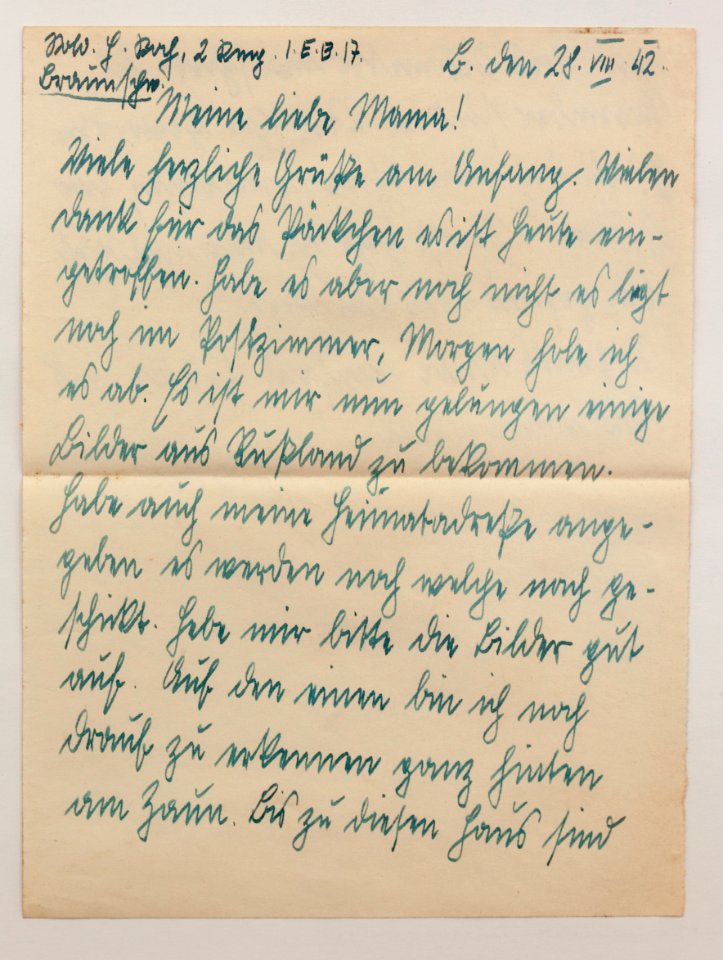 Sold. H. Koch, 2 Komp. I.E.B.17.
B. den 28. VIII. 42.
Braunschw.
Meine liebe Mama!
Viele herzliche Grüße am Anfang. Vielen
dank für das Päckchen es ist heute ein-
getroffen. Habe es aber noch nicht es ligt
noch im Postzimmer, Morgen hole ich
es ab. Es ist mir nun gelungen einige
Bilder aus Rußland zu bekommen.
Habe auch meine Heimatadreße ange-
geben es werden noch welche nach ge-
schickt. Hebe mir bitte die Bilder gut
auf. Auf den einen bin ich noch
drauf zu erkennen ganz hinten
am Zaun. Bis zu diesen Haus sind